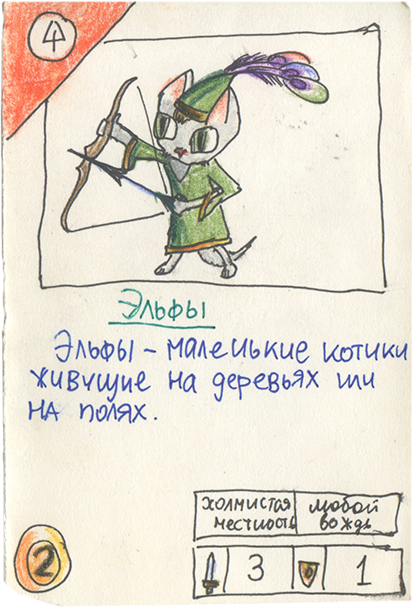 4
Эльфы
Эльфы – маленькие котики
живущие на деревьях или
на полях.
холмистая местность
любой вождь
2
3
1